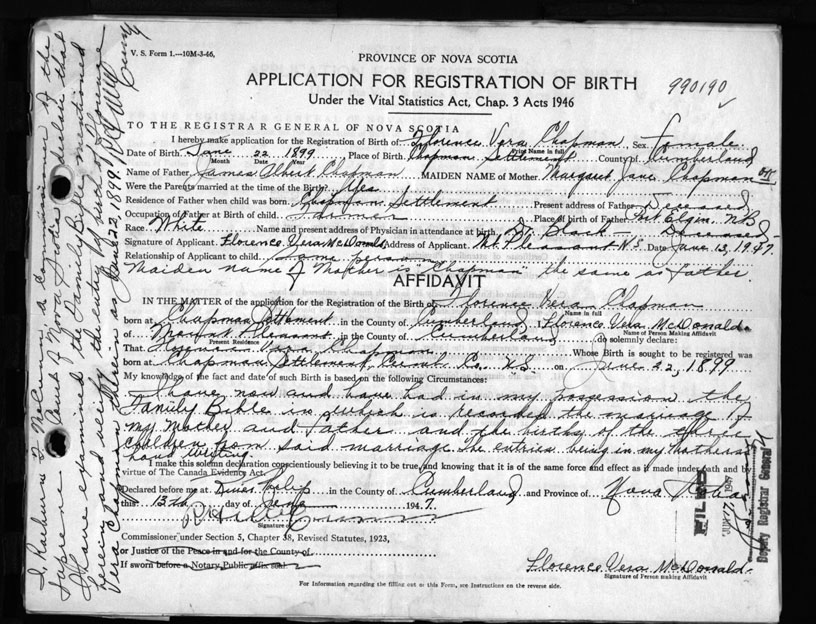 V. S. Form 1.—10M-3-46.
PROVINCE OF NOVA SCOTIA
APPLICATION FOR REGISTRATION OF BIRTH
Under the Vital Statistics Act, Chap. 3 Acts 1946
990190
TO THE REGISTRAR GENERAL OF NOVA SCOTIA
I hereby make application for the Registration of Birth of Florence Vera Chapman Sex Female
Print Name in full
Date of Birth June 22 1899 Place of Birth Chapman Settlement County of Cumberland
Month Date Year
Name of Father James Albert Chapman MAIDEN NAME of Mother Margaret Jane Chapman
Were the Parents married at the time of the Birth? Yes
Residence of Father when child was born Chapman Settlement Present address of Father Deceased
Occupation of Father at Birth of child Farmer Place of birth of Father Mt. Elgin, N B
Race White Name and present address of Physician in attendance at birth Dr. Black - Deceased
Signature of Applicant Florence Vera McDonald Address of Applicant Mt. Pleasant N.S. Date June 13, 1947
Relationship of Applicant to child Same person
Maiden name of Mother is "Chapman" the same as Father
AFFIDAVIT
IN THE MATTER of the application for the Registration of the Birth of Florence Vera Chapman
Name in full
born at Chapman Settlement in the County of Cumberland I Florence Vera McDonald
Name of Person Making Affidavit
of Mount Pleasant in the County of Cumberland do solemnly declare:
Present Residence
That Florence Vera Chapman Whose Birth is sought to be registered was
born at Chapman Settlement, Cumb. Co., N S on June 22, 1899
My knowledge of the fact and date of such Birth is based on the following Circumstances:
I have now and have had in my possession the
Family Bible in which is recorded the marriage of
my Mother and Father and the births of the three
children from said marriage the entries being in my Mothers
hand writing
I make this solemn declaration conscientiously believing it to be true, and knowing that it is of the same force and effect as if made under oath and by
virtue of The Canada Evidence Act.
Declared before me at River Philip in the County of Cumberland and Province of Nova Scotia
this 13th day of June 1947.
Signature of
Commissioner under Section 5, Chapter 38, Revised Statutes, 1923,
or Justice of the Peace in and for the County of
If sworn before a Notary Public affix seal
Florence Vera McDonald
Signature of Person making Affidavit
For Information regarding the filling out of this Form, see Instructions on the reverse side.
FILED
JUN 17 1947
Deputy Registrar General
of the
Supreme Court of Nova Scotia that
I have examined the Family Bible mentioned
herein and verify the entry of such Florence
Vera Chapman therein as June 22, 1899